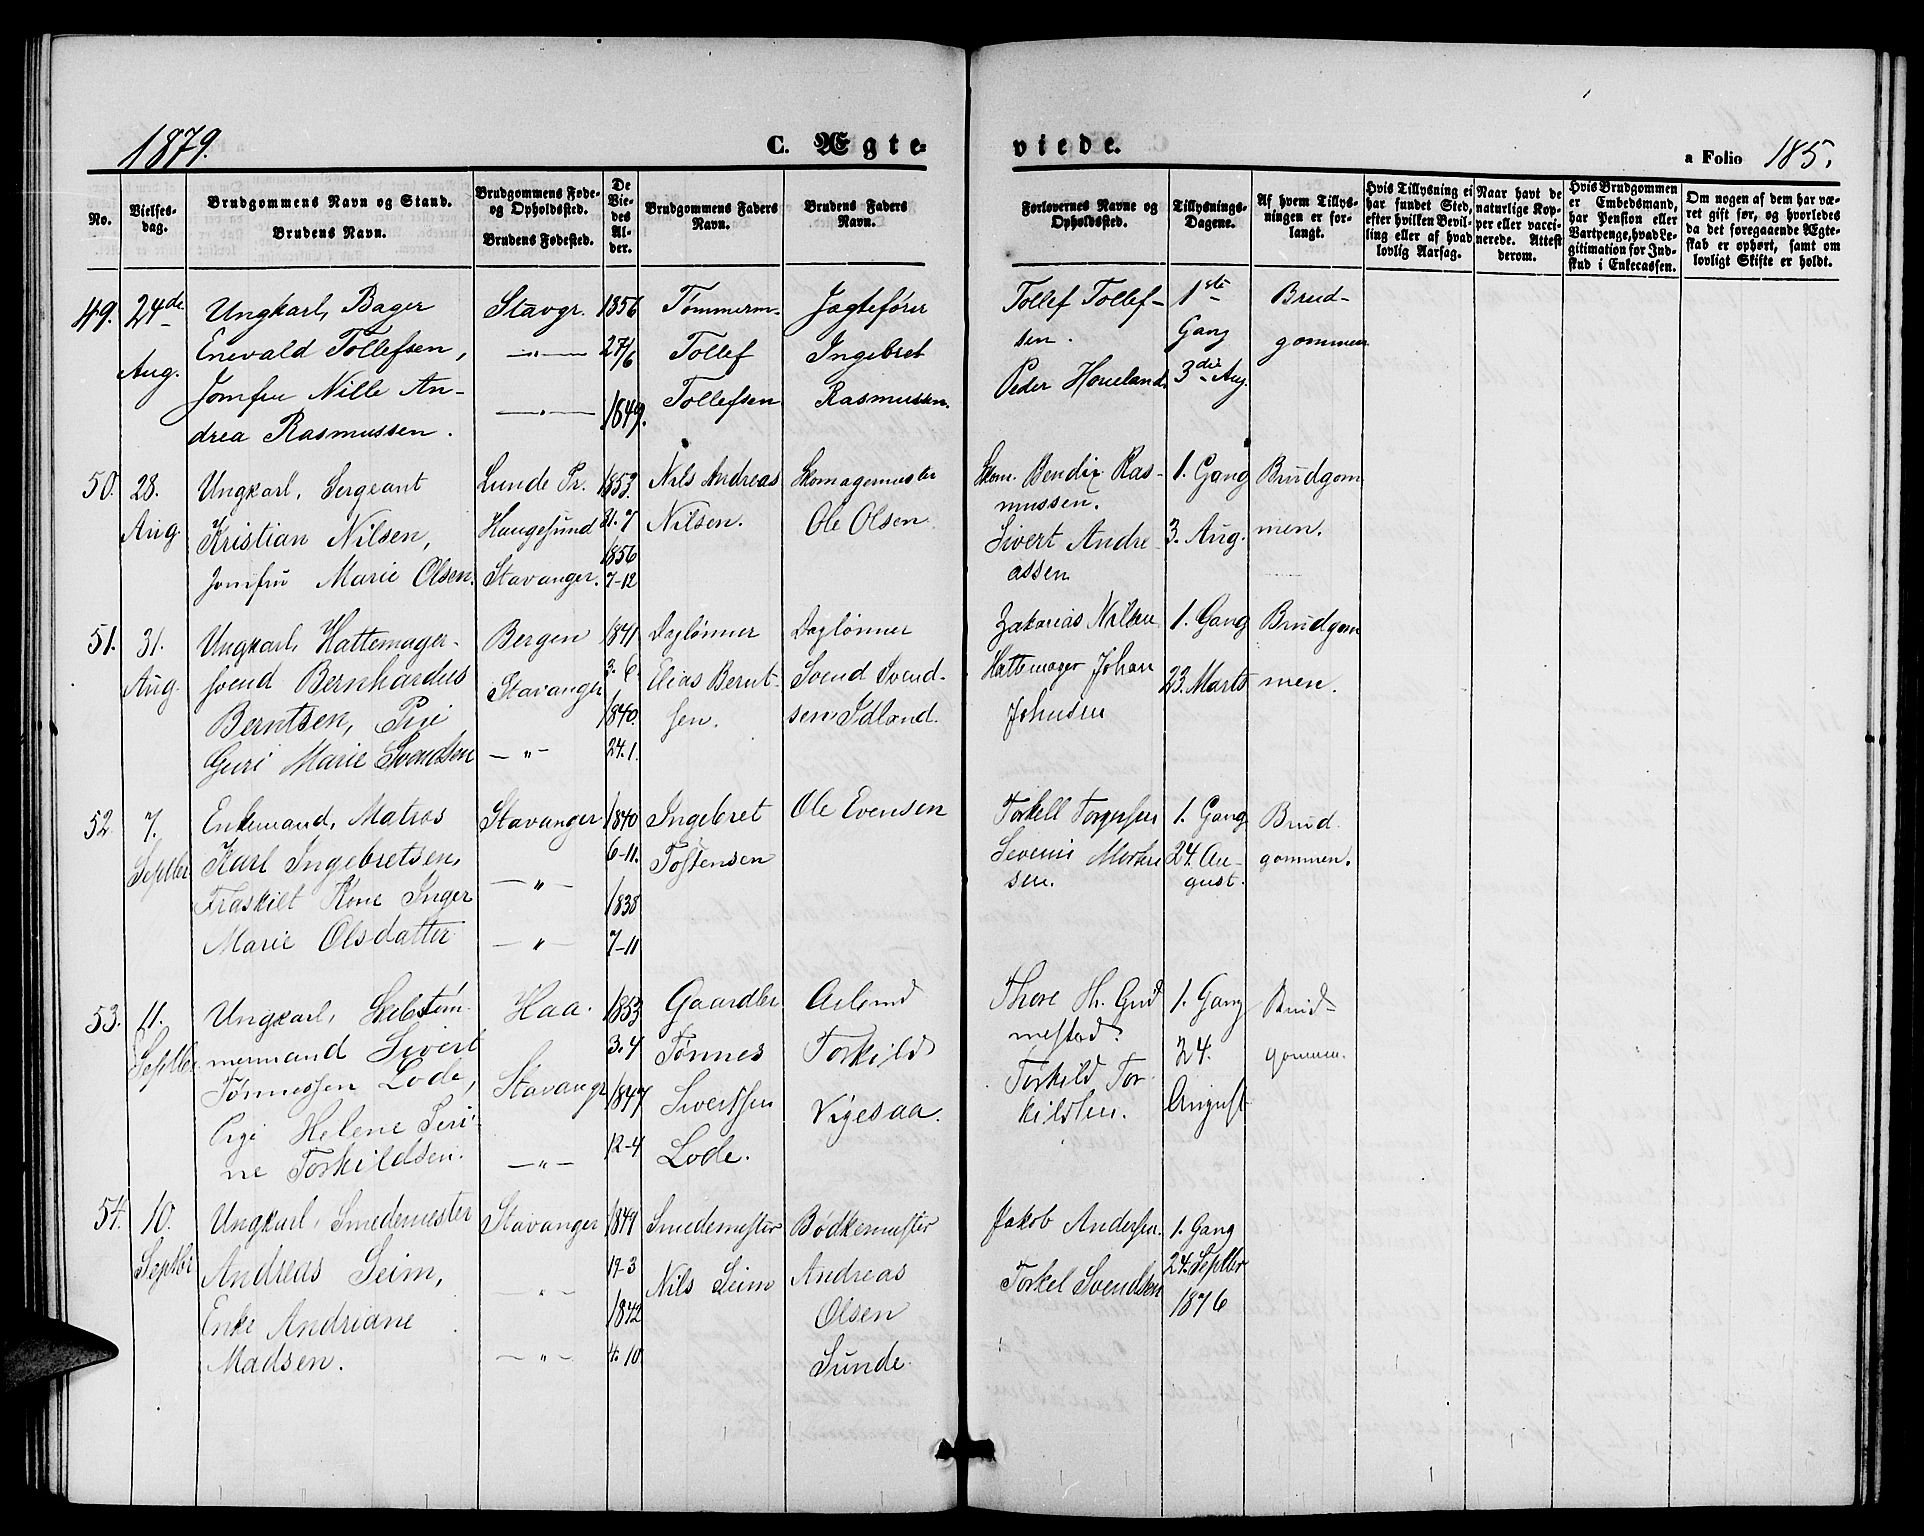 1879.
C. Ægte-
viede.
a Folio 185.
No.
Vielses-
dag.
Brudgommens Navn og Stand.
Brudens Navn.
Brudgommens Føde-
og Opholdssted.
Brudens Fødested.
De
Vie-
des
Al-
der.
Brudgommens Faders
Navn.
Brudens Faders
Navn.
Forlovernes Navne og
Opholdssted.
Tillysnings-
Dagene.
Af hvem Tillys-
ningen er for-
langt.
Hvis Tillysning ei
har fundet Sted,
efter hvilken Bevil-
ling eller af hvad
lovlig Aarsag.
Naar havt de
naturlige Kop-
per eller vacci-
nerede. Attest
derom.
Hvis Brudgommen
er Embedsmand,
har Pension eller
Vartpenge, hvad Le-
gitimation for Ind-
skud i Enkecassen.
Om nogen af dem har væ-
ret gift før, og hvorledes
da det foregaaende Ægte-
skab er ophørt, samt om
lovligt Skifte er holdt.
49.
24de
Aug.
Ungkarl, Bager
Enevald Tollefsen,
Jomfru Nille An-
drea Rasmussen.
Stavgr.
—"—
—"—
1856
27/6
1849.
Tømmerm.
Tollef
Tollefsen
Jagtefører
Ingebret
Rasmussen.
Tollef Tollef-
sen.
Peder Houeland.
1ste
Gang
3die Aug.
Brud-
gommen
50.
28.
Aug.
Ungkarl, Sergeant
Kristian Nilsen,
Jomfru Marie Olsen.
Lunde Pr.
Haugesund
Stavanger.
1853.
21.7
1856
7-12
Nils Andreas
Nilsen.
Skomagermester
Ole Olsen.
Skom. Bendix Ras-
mussen.
Sivert Andre-
assen
1. Gang
3. Aug.
Brudgom
men.
51.
31.
Aug.
Ungkarl, Hattemager-
svend Bernhardus
Berntsen, Pige
Guri Marie Svendsen
Bergen
Stavanger
— " —
1841
3. 6.
1840.
24.1.
Daglønner
Elias Bernt-
sen.
Daglønner
Svend Svend-
sen Idland.
Zakarias Nilsen
Hattemager Johan
Johnsen
1. Gang
23. Marts
Brudgom
men.
52.
7.
Septbr
Enkemand, Matros
Karl Ingebretsen,
Fraskilt Kone Inger
Marie Olsdatter
Stavanger
— " —
— " —
1840
6-11.
1838
7-11
Ingebret
Tostensen
Ole Evensen
Torkell Torgersen
Severin Morten
sen.
1. Gang
24. Au-
gust.
Brud.
gommen.
53.
11.
Septbr.
Ungkarl, Skibstøm-
mermand Sivert
Tønnessen Lode,
Pige Helene Seri-
ne Torkildsen.
Haa.
Stavangr
— " —
1853
3.4
1847
12-4
Gaardbr
Tønnes
Sivertsen
Lode.
Torkild
Vigesaa.
Thore Th. Grud
mestad.
Torkild Tor-
kildsen.
1. Gang
24.
August
Brud-
gommen.
54.
10.
Septbr
Ungkarl, Smedemester
Andreas Seim,
Enke Andriane
Madsen.
Stavanger
— " —
— " —
1841
19-3
1842
4. 10
Smedemester
Nils Seim
Bødkermester
Andreas
Olsen
Sunde.
Jakob Andersen.
Torkel Svendsen
1. Gang
24. Septbr
1876